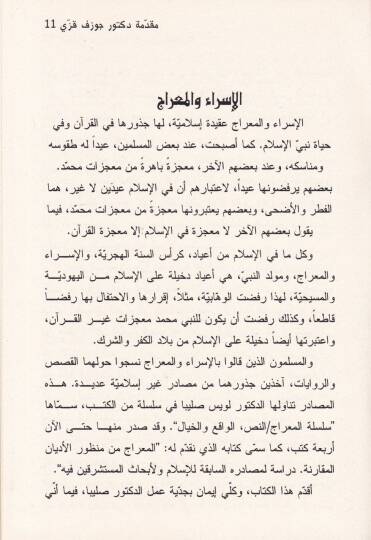 مقدّمة دكتور جوزف قزّي 11
الإسراء والمعراج
الإسراء والمعراج عقيدة إسلاميّة، لها جذورها في القرآن وفي
حياة نبيّ الإسلام. كما أصبحت، عند بعض المسلمين، عيداً له طقوسه
ومناسكه، وعند بعضهم الآخر، معجزةً باهرةً من معجزات محمّد.
بعضهم يرفضونها عيداً، لاعتبارهم أن في الإسلام عيدَين لا غير، هما
الفطر والأضحى، وبعضهم يعتبرونها معجزةً من معجزات محمّد، فيما
يقول بعضهم الآخر لا معجزة في الإسلام إلا معجزة القرآن.
وكل ما في الإسلام من أعياد، كرأس السنة الهجريّة، والإسراء
والمعراج، ومولد النبيّ، هي أعياد دخيلة على الإسلام من اليهوديّة
والمسيحيّة، لهذا رفضت الوهّابيّة، مثلاً، إقرارها والاحتفال بها رفضاً
قاطعاً، وكذلك رفضت أن يكون للنبي محمد معجزات غير القرآن،
واعتبرتها أيضاً دخيلة على الإسلام من بلاد الكفر والشرك.
والمسلمون الذين قالوا بالإسراء والمعراج نسجوا حولهما القصص
والروايات، آخذين جذورهما من مصادر غير إسلاميّة عديدة. هذه
المصادر تناولها الدكتور لويس صليبا في سلسلة من الكتب، سمّاها
"سلسلة المعراج/النص، الواقع والخيال". وقد صدر منها حتى الآن
أربعة كتب، كما سمّى كتابه الذي نقدّم له: "المعراج من منظور الأديان
المقارنة. دراسة لمصادره السابقة للإسلام ولأبحاث المستشرقين فيه".
أقدّم هذا الكتاب، وكلّي إيمان بجدّية عمل الدكتور صليبا، فيما أنّي